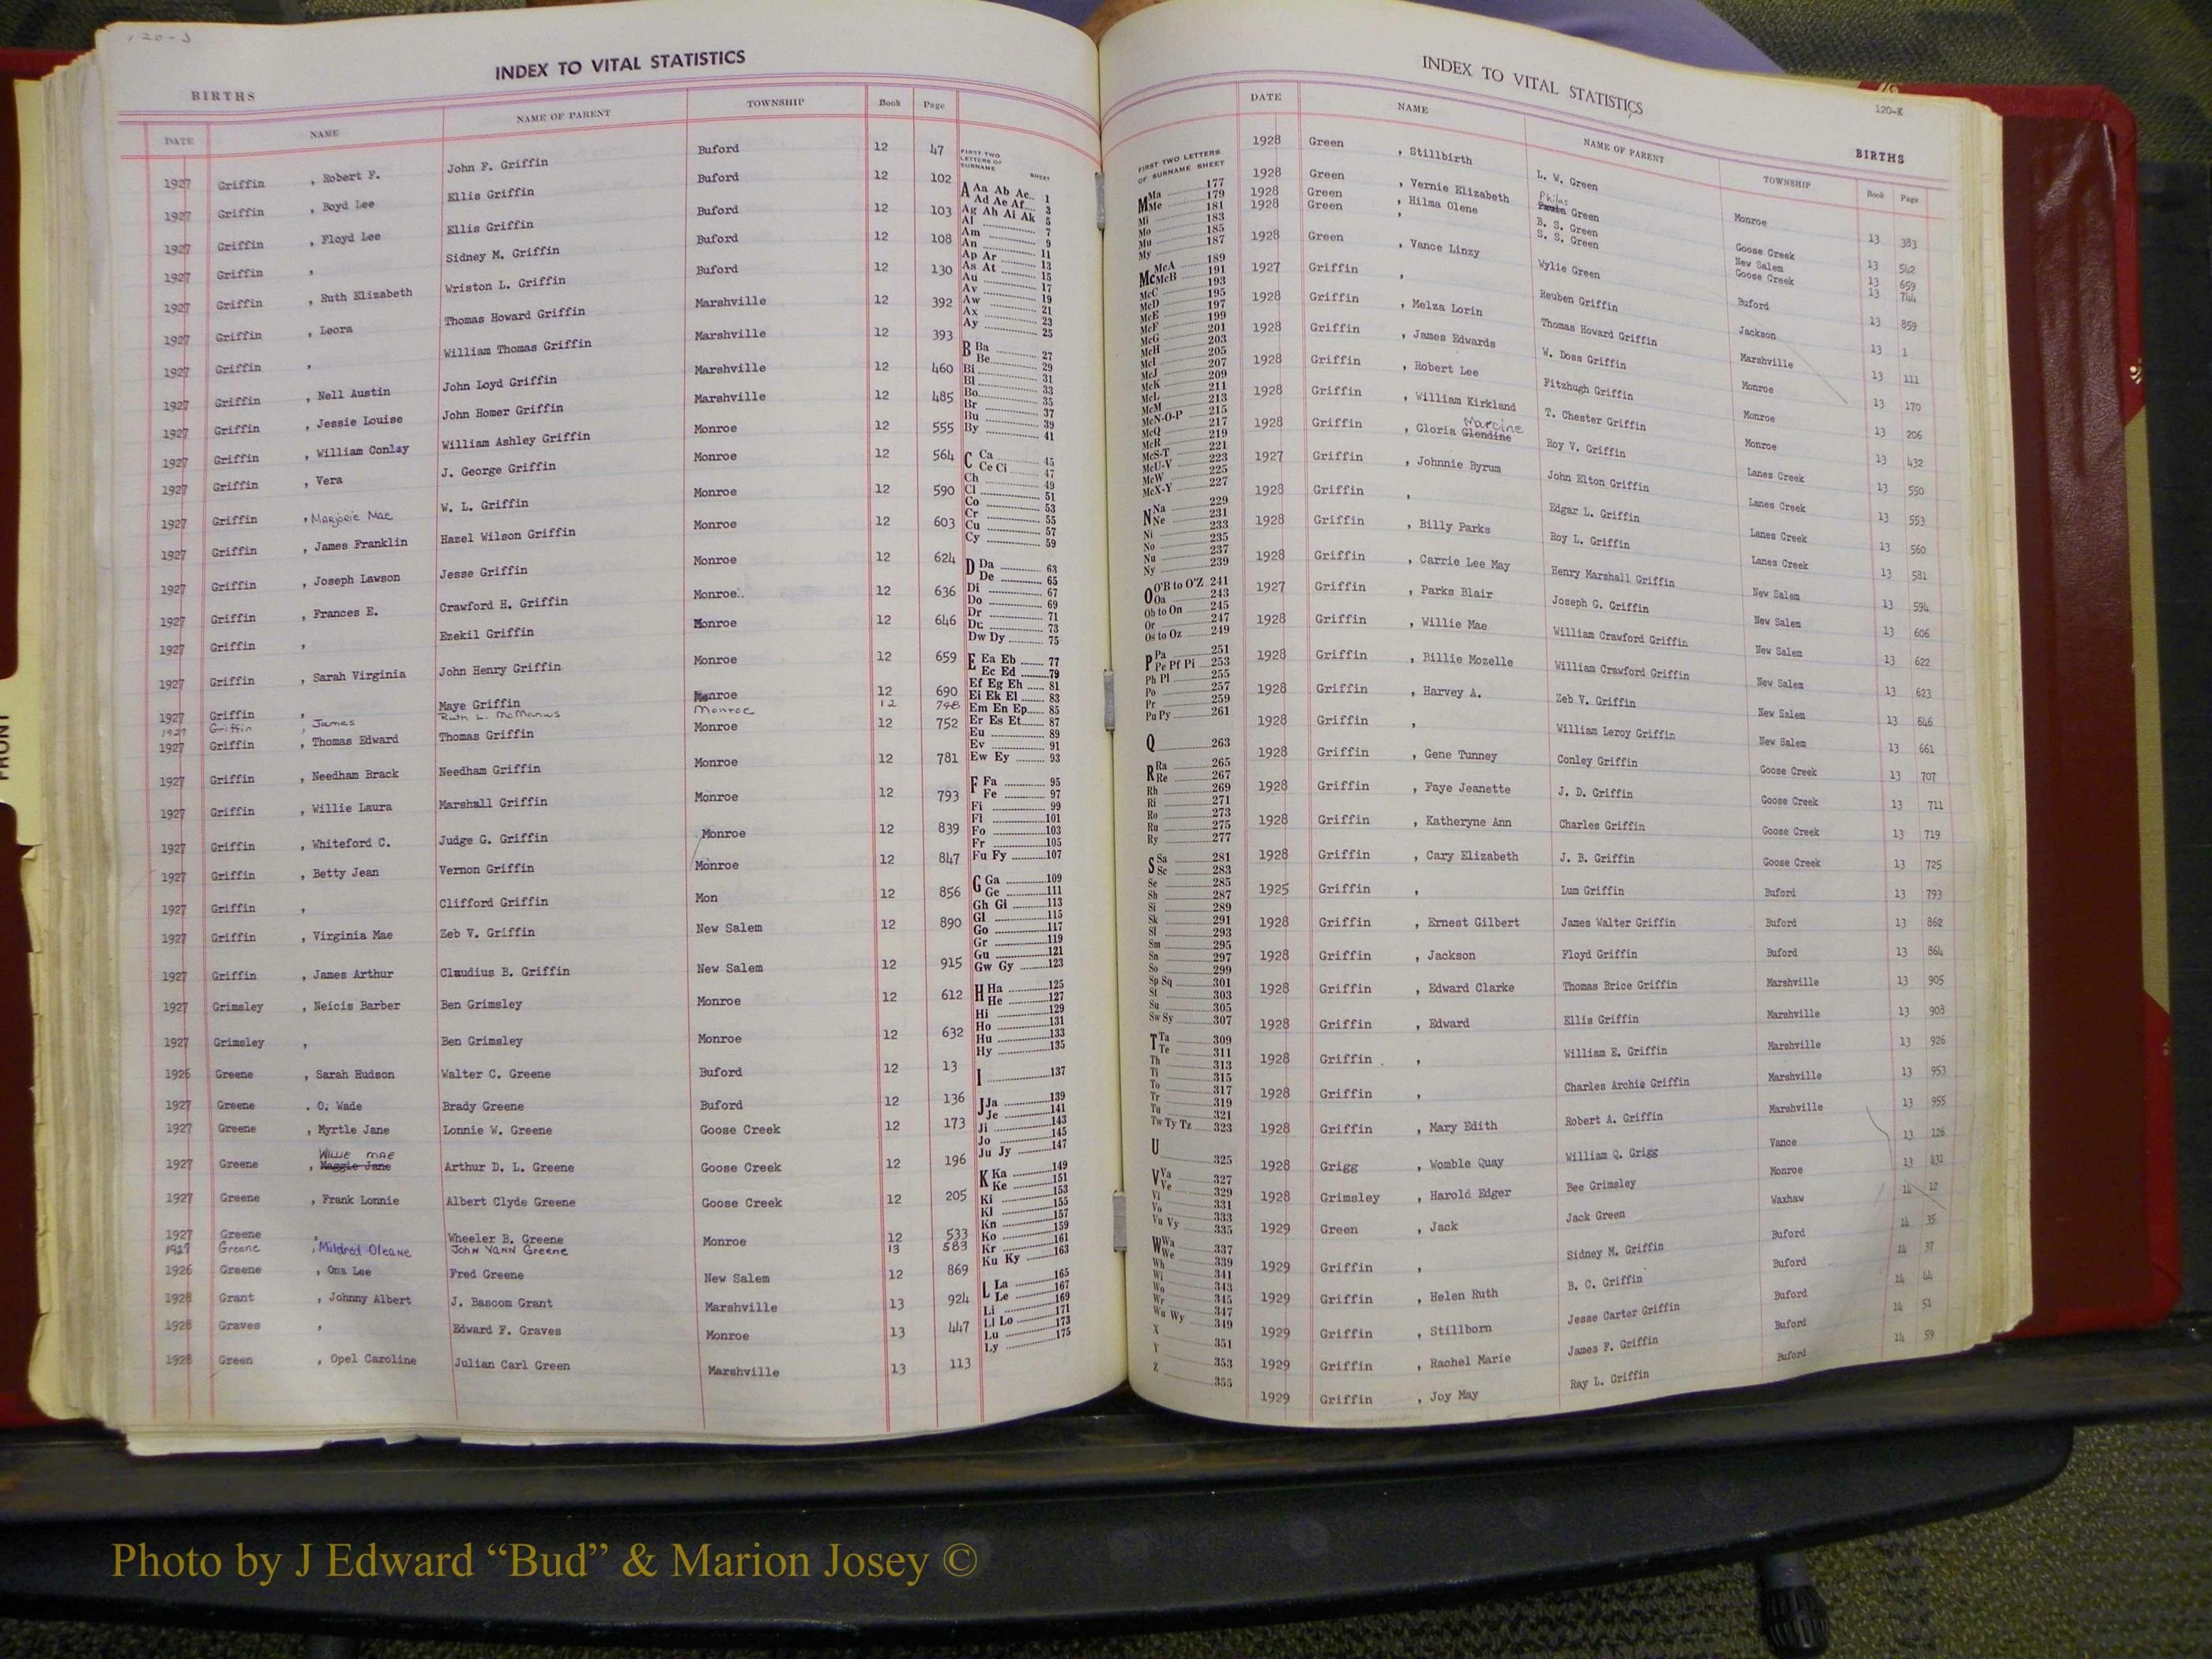 120-J
INDEX TO VITAL STATISTICS
BIRTHS
DATE NAME NAME OF PARENT TOWNSHIP Book Page
1927 Griffin , Robert F. John F. Griffin Buford 12 47
1927 Griffin , Boyd Lee Ellis Griffin Buford 12 102
1927 Griffin , Floyd Lee Ellis Griffin Buford 12 103
1927 Griffin , Sidney M. Griffin Buford 12 108
1927 Griffin , Ruth Elizabeth Wriston L. Griffin Buford 12 130
1927 Griffin , Leora Thomas Howard Griffin Marshville 12 392
1927 Griffin , William Thomas Griffin Marshville 12 393
1927 Griffin , Nell Austin John Loyd Griffin Marshville 12 460
1927 Griffin , Jessie Louise John Homer Griffin Marshville 12 485
1927 Griffin , William Conley William Ashley Griffin Monroe 12 555
1927 Griffin , Vera J. George Griffin Monroe 12 564
1927 Griffin , Marjorie Mae W. L. Griffin Monroe 12 590
1927 Griffin , James Franklin Hazel Wilson Griffin Monroe 12 603
1927 Griffin , Joseph Lawson Jesse Griffin Monroe 12 624
1927 Griffin , Frances E. Crawford H. Griffin Monroe.. 12 636
1927 Griffin , Ezekil Griffin Monroe 12 646
1927 Griffin , Sarah Virginia John Henry Griffin Monroe 12 659
1927 Griffin , Maye Griffin Monroe 12 690
1927 Griffin , James Ruth L. McManus Monroe 12 748
1927 Griffin , Thomas Edward Thomas Griffin Monroe 12 752
1927 Griffin , Needham Brack Needham Griffin Monroe 12 781
1927 Griffin , Willie Laura Marshall Griffin Monroe 12 793
1927 Griffin , Whiteford C. Judge G. Griffin Monroe 12 839
1927 Griffin , Betty Jean Vernon Griffin Monroe 12 847
1927 Griffin , Clifford Griffin Mon 12 856
1927 Griffin , Virginia Mae Zeb V. Griffin New Salem 12 890
1927 Griffin , James Arthur Claudius B. Griffin New Salem 12 915
1927 Grimsley , Neicis Barber Ben Grimsley Monroe 12 612
1927 Grimsley , Ben Grimsley Monroe 12 632
1926 Greene , Sarah Hudson Walter C. Greene Buford 12 13
1927 Greene . O. Wade Brady Greene Buford 12 136
1927 Greene , Myrtle Jane Lonnie W. Greene Goose Creek 12 173
WILLIE MAE
1927 Greene , Maggie Jane Arthur D. L. Greene Goose Creek 12 196
1927 Greene , Frank Lonnie Albert Clyde Greene Goose Creek 12 205
1927 Greene , Wheeler B. Greene Monroe 12 533
1927 Greene , Mildred Oleane John Vann Greene 13 583
1926 Greene , Ona Lee Fred Greene New Salem 12 869
1928 Grant , Johnny Albert J. Bascom Grant Marshville 13 924
1928 Graves , Edward F. Graves Monroe 13 447
1928 Green , Opel Caroline Julian Carl Green Marshville 13 113
FIRST TWO
LETTERS OF
SURNAME SHEET
A Aa Ab Ac.. 1
Ad Ae Af.... 3
Ag Ah Ai Ak 5
Al 7
Am 9
An 11
Ap Ar 13
As At 15
Au 17
Av 19
Aw 21
Ax 23
Ay 25
B Ba 27
Be 29
Bi 31
Bl 33
Bo 35
Br 37
Bu 39
By 41
C Ca 45
Ce Ci 47
Ch 49
Cl 51
Co 53
Cr 55
Cu 57
Cy 59
D Da 63
De 65
Di 67
Do 69
Dr 71
Du 73
Dw Dy 75
E Ea Eb 77
Ec Ed 79
Ef Eg Eh 81
Ei Ek El 83
Em En Ep 85
Er Es Et 87
Eu 89
Ev 91
Ew Ey 93
F Fa 95
Fe 97
Fi 99
Fl 101
Fo 103
Fr 105
Fu Fy 107
G Ga 109
Ge 111
Gh Gi 113
Gl 115
Go 117
Gr 119
Gu 121
Gw Gy 123
H Ha 125
He 127
Hi 129
Ho 131
Hu 133
Hy 135
I 137
J Ja 139
Je 141
Ji 143
Jo 145
Ju Jy 147
K Ka 149
Ke 151
Ki 153
Kl 155
Kn 157
Ko 159
Kr 161
Ku Ky 163
L La 165
Le 167
Li 169
Ll Lo 171
Lu 173
Ly 175
INDEX TO VITAL STATISTICS
120-K
BIRTHS
FIRST TWO LETTERS
OF SURNAME SHEET
M Ma 177
Me 179
Mi 181
Mo 183
Mu 185
My 187
Mc McA 189
McB 191
McC 193
McD 195
McE 197
McF 199
McG 201
McH 203
McI 205
McJ 207
McK 209
McL 211
McM 213
McN-O-P 215
McQ 217
McR 219
McS-T 221
McU-V 223
McW 225
McX-Y 227
N Na 229
Ne 231
Ni 233
No 235
Nu 237
Ny 239
O O'B to O'Z 241
Oa 243
Ob to On 245
Or 247
Os to Oz 249
P Pa 251
Pe Pf Pi 253
Ph Pl 255
Po 257
Pr 259
Pu Py 261
Q 263
R Ra 265
Re 267
Rh 269
Ri 271
Ro 273
Ru 275
Ry 277
S Sa 281
Sc 283
Se 285
Sh 287
Si 289
Sk 291
Sl 293
Sm 295
Sn 297
So 299
Sp Sq 301
St 303
Su 305
Sw Sy 307
T Ta 309
Te 311
Th 313
Ti 315
To 317
Tr 319
Tu 321
Tw Ty Tz 323
U 325
V Va 327
Ve 329
Vi 331
Vo 333
Vu Vy 335
W Wa 337
We 339
Wh 341
Wi 343
Wo 345
Wr 347
Wu Wy 349
X 351
Y 353
Z 355
DATE NAME NAME OF PARENT TOWNSHIP Book Page
1928 Green , Stillbirth L. W. Green Monroe 13 383
Philas
1928 Green , Vernie Elizabeth Green Goose Creek 13 542
1928 Green , Hilma Olene B. S. Green New Salem 13 659
1928 Green , S. S. Green Goose Creek 13 744
1928 Green , Vance Linzy Wylie Green Buford 13 859
1927 Griffin , Reuben Griffin Jackson 13 1
1928 Griffin , Melza Lorin Thomas Howard Griffin Marshville 13 111
1928 Griffin , James Edwards W. Doss Griffin Monroe 13 170
1928 Griffin , Robert Lee Fitzhugh Griffin Monroe 13 206
1928 Griffin , William Kirkland T. Chester Griffin Monroe 13 432
Marcine
1928 Griffin , Gloria Glendine Roy V. Griffin Lanes Creek 13 550
1927 Griffin , Johnnie Byrum John Elton Griffin Lanes Creek 13 553
1928 Griffin , Edgar L. Griffin Lanes Creek 13 560
1928 Griffin , Billy Parks Roy L. Griffin Lanes Creek 13 581
1928 Griffin , Carrie Lee May Henry Marshall Griffin New Salem 13 594
1927 Griffin , Parks Blair Joseph G. Griffin New Salem 13 606
1928 Griffin , Willie Mae William Crawford Griffin New Salem 13 622
1928 Griffin , Billie Mozelle William Crawford Griffin New Salem 13 623
1928 Griffin , Harvey A. Zeb V. Griffin New Salem 13 646
1928 Griffin , William Leroy Griffin New Salem 13 661
1928 Griffin , Gene Tunney Conley Griffin Goose Creek 13 707
1928 Griffin , Faye Jeanette J. D. Griffin Goose Creek 13 711
1928 Griffin , Katheryne Ann Charles Griffin Goose Creek 13 719
1928 Griffin , Cary Elizabeth J. B. Griffin Goose Creek 13 725
1925 Griffin , Lum Griffin Buford 13 793
1928 Griffin , Ernest Gilbert James Walter Griffin Buford 13 862
1928 Griffin , Jackson Floyd Griffin Buford 13 864
1928 Griffin , Edward Clarke Thomas Brice Griffin Marshville 13 905
1928 Griffin , Edward Ellis Griffin Marshville 13 908
1928 Griffin . , William E. Griffin Marshville 13 926
1928 Griffin , Charles Archie Griffin Marshville 13 953
1928 Griffin , Mary Edith Robert A. Griffin Marshville 13 955
1928 Grigg , Womble Quay William Q. Grigg Vance 13 126
1928 Grimsley , Harold Edger Bee Grimsley Monroe 13 831
1929 Green , Jack Jack Green Waxhaw 14 12
1929 Griffin , Sidney M. Griffin Buford 14 35
1929 Griffin , Helen Ruth B. C. Griffin Buford 14 37
1929 Griffin , Stillborn Jesse Carter Griffin Buford 14 44
1929 Griffin , Rachel Marie James F. Griffin Buford 14 52
1929 Griffin , Joy May Ray L. Griffin Buford 14 59
FRONT
Photo by J Edward “Bud” & Marion Josey ©